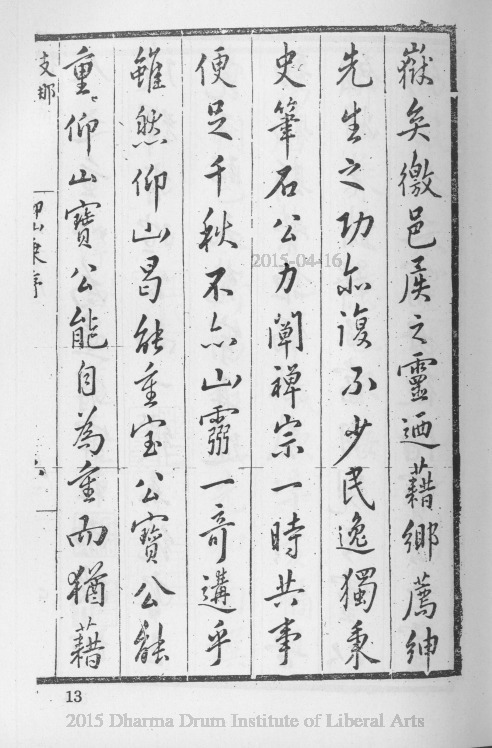 嶽矣徼邑侯之靈迺藉鄉薦紳
先生之功亦復不少民逸獨秉
史筆石公力闡禅宗一時共事
便足千秋不亦山靈一奇遘乎
雖然仰山曷能重宝公寶公能
重仰山寶公能自為重而猶藉
支那
仰山乘序
13
2015-04-16
2015 Dharma Drum Institute of Liberal Arts